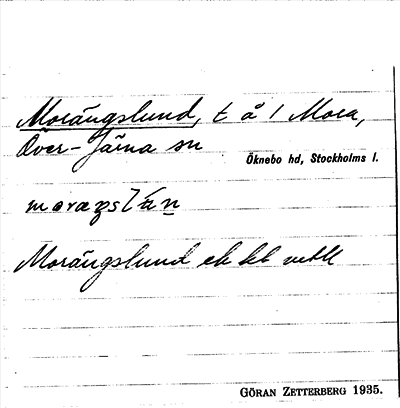 Morängslund, t å 1 Mora,
Över-Järna sn
Öknebo hd, Stockholms l.
Morängslund ek bl
GÖRAN ZETTERBERG 1935.